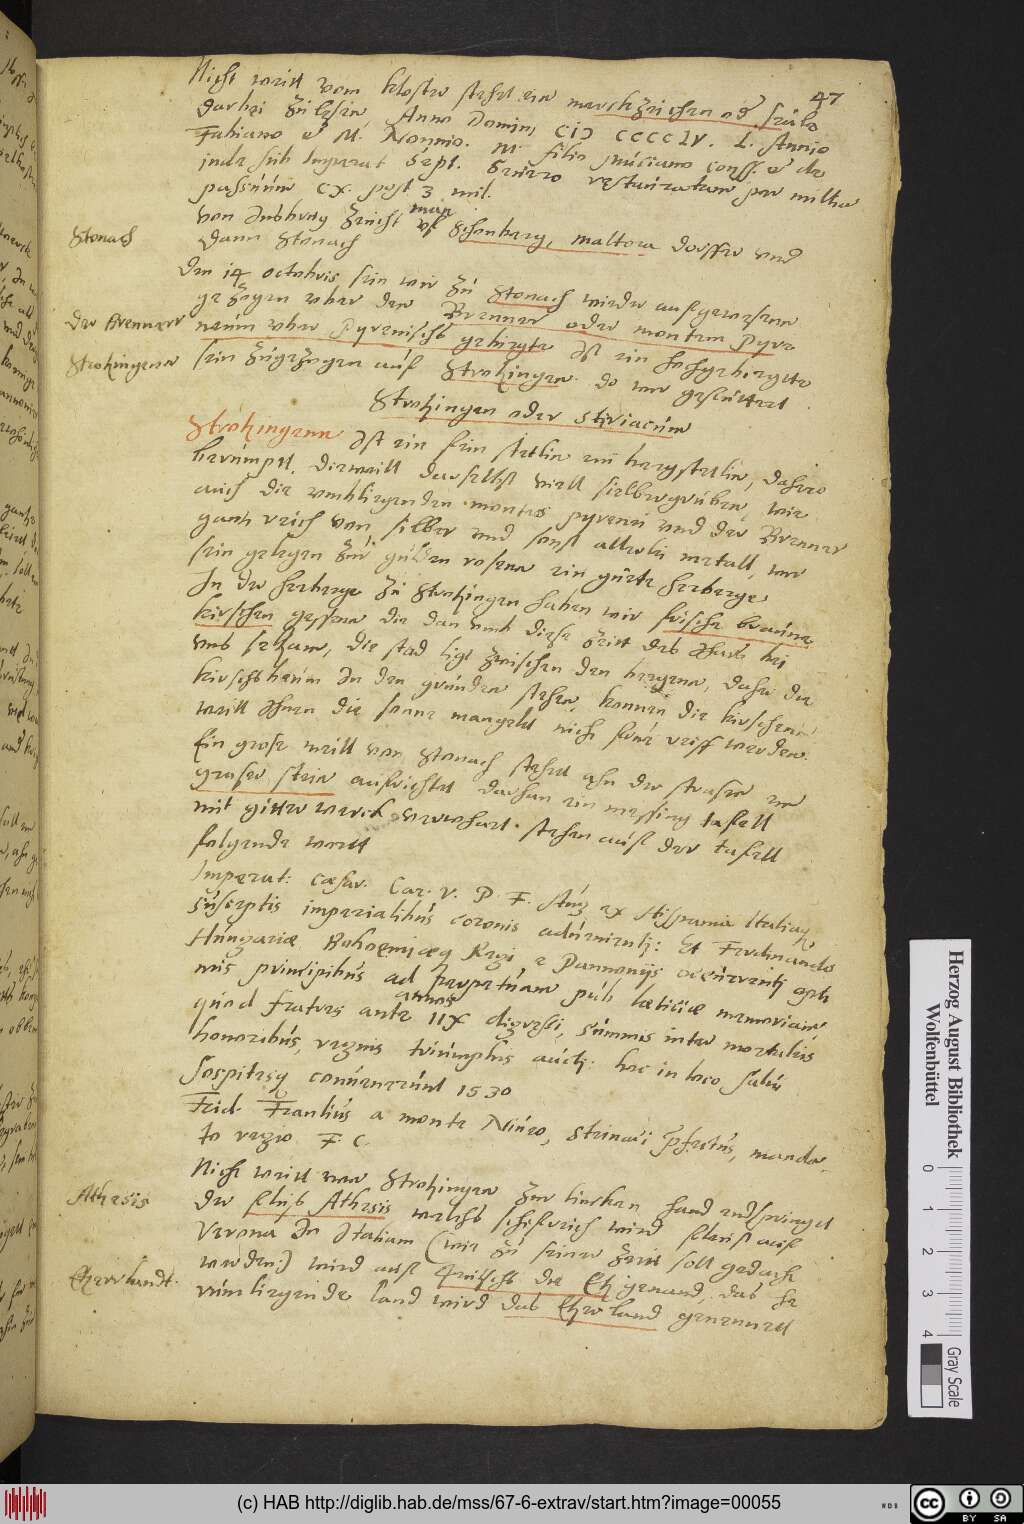 47
Nicht weitt vom kloster stehet ein merckzeichen od Seule
darbei zu lesen, Anno Domini CIƆ CCCCLV. L. Annio
Fabiano et M. Nonnio. M. filio Muciano conss. et de
inde sub Imperat Sept. Severo restauratum per millia
passuum CX. post 3 mil.
von Insbrug zeucht man uf Schonberg, mattora dorffer und
Stonach
dann Stonach
Den 14 octobris sein wir zu Stonach wieder aufgewesenn
gezogen uber den Brenner oder montem Pyre
Der Brenner
neum uber Pyrenischs gebirgte Ist ein hochgebirgete
Stertzingenn
sein zugezogen auf Stertzingen do wir gefuttert
Stertzingen oder Stiriacum
Stertzingenn Ist ein fein stetlin ein bergstetlin, dahero
berumpt, dieweill daselbst viell silbergruben, wie
auch die umbliegenden montes pyrenei und der Brenner
gantz reich von silber und sonst allerlei metall, wir
sein gelegen zur gulden rosenn ein gute herberge,
In der herberge zu Stertzingen haben wir frische braune
kirschen gessenn die dan umb diese Zeitt des Jhars bei
uns seltzam, die stad ligt zwischen den bergenn, daher die
kirschbeum In den grunden stehen, konnen die kirschenn
weill Ihnen die sonne mangelt nich fouc reiff werden.
Ein grose meill von Stonach stehet ahn der strasen ein
groser stein aufrichtet daran ein messing tafell
mit gitterwerck verwahret. stehen auf der tafell
folgende wortt
Imperat: Cæsar. Car. V. P. F. Aug ex Hispania Italiaq
Susceptis imperialibus coronis advenienti: Et Ferdinando
Hungariæ Bohoemiæq Regi e Pannoniis occurrenti opti
mis principibus ad perpetuam pub læticiæ memoriam
quod fratres ante annos IIX digressi, summis inter mortales
honoribus, regnis triumphis aucti: hoc in loco salui
sospitesq convenerunt 1530
Frid. Franlius a monte Niueo, Steinaci Pfectus, manda
to regio F. C.
Nicht weitt von Stertzingen zur lincken hand entspringet
Athesis
der flusz Athesis welchs schiffreich wird fleust auf
Verona In Italiam (wie zu seiner Zeit soll gedacht
werden) wird auf Teutschs die Etz genand, das he
Etzerlandt.
rumliegende land wird das Etzerland genennett
Herzog August Bibliothek
Wolfenbüttel
0 1 2 3 4
Gray Scale
(c) HAB http://diglib.hab.de/mss/67-6-extrav/start.htm?image=00055
WDB
cc BY SA